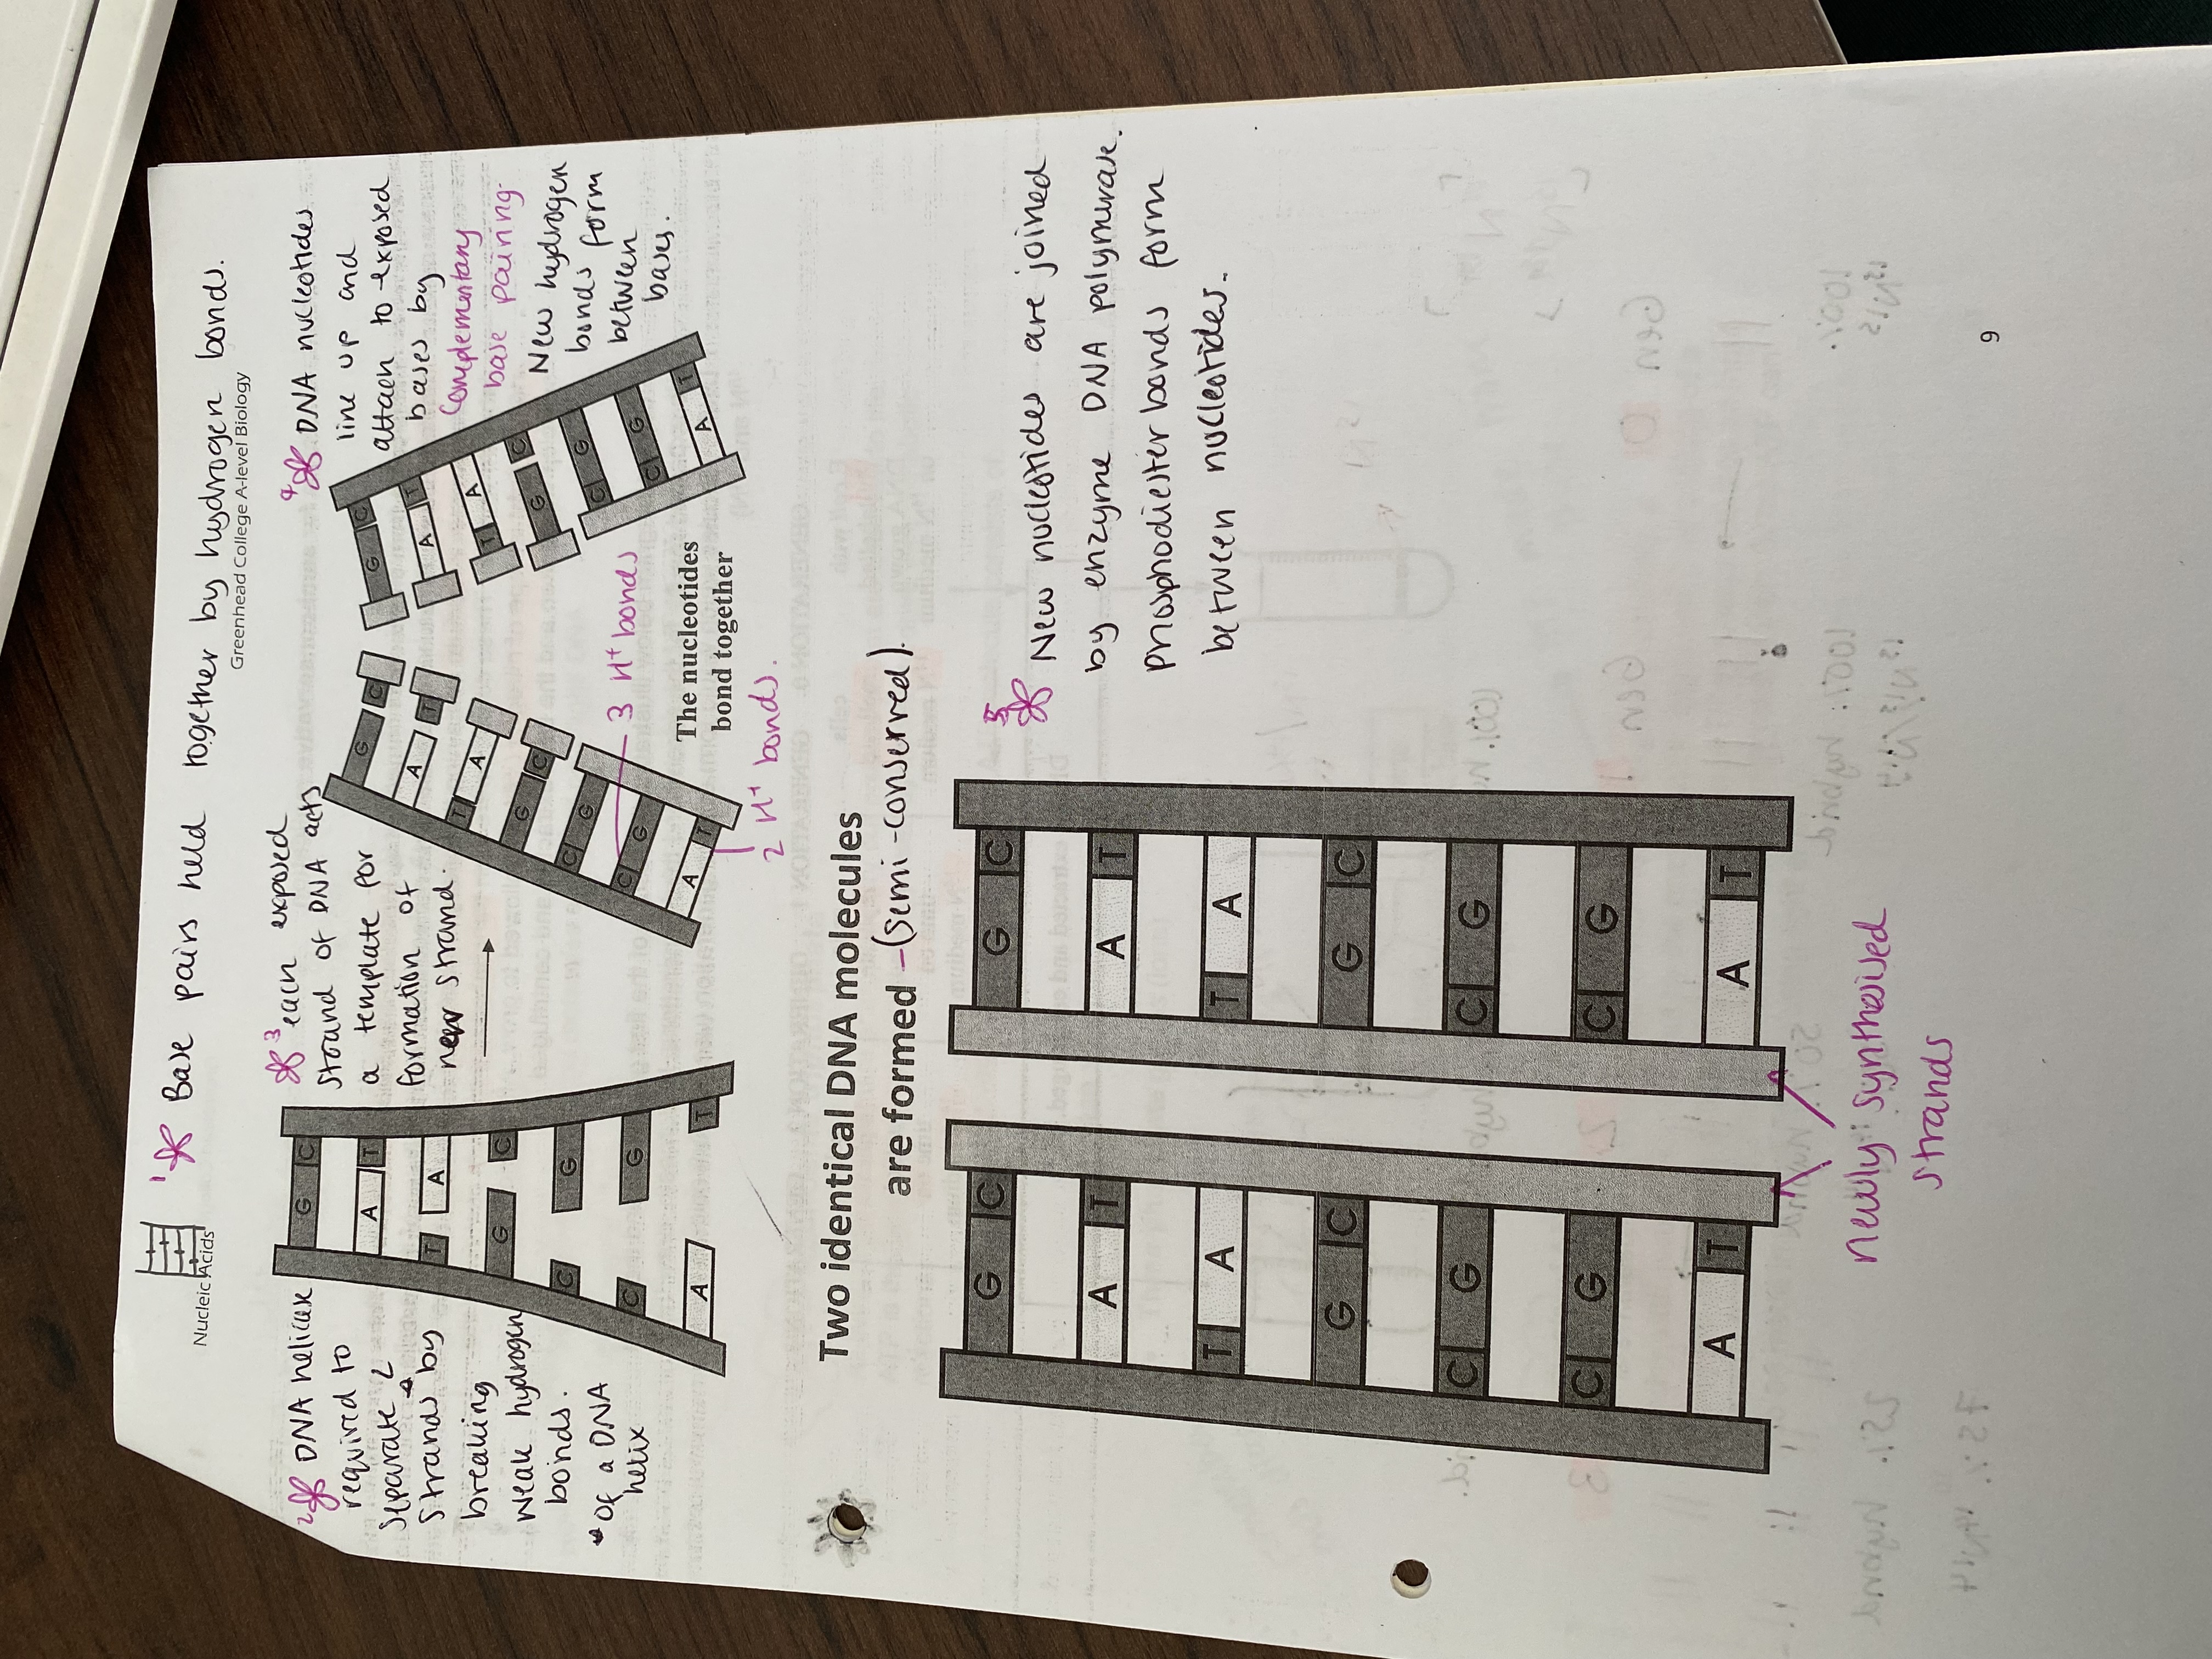 1 Base pairs held together by hydrogen bonds.
Nucleic Acids
Greenhead College A-level Biology
2 DNA helicase
required to
separate 2
strands by
breaking
weak hydrogen
bonds.
of a DNA
helix
G C
A T
T A
G C
C G
C G
A T
3 each exposed
strand of DNA acts
a template for
formation of
new strand.
G C
A T
T A
G C
C G
C G
A T
3 H+ bonds
2 H+ bonds.
The nucleotides
bond together
G C
A T
T A
G C
C G
C G
A T
4 DNA nucleotides
line up and
attach to exposed
bases by
complementary
base pairing
New hydrogen
bonds form
between
bases.
Two identical DNA molecules
are formed - (semi-conserved).
G C
A T
T A
G C
C G
C G
A T
G C
A T
T A
G C
C G
C G
A T
newly synthesised
strands
5 New nucleotides are joined
by enzyme DNA polymerase.
Phosphodiester bonds form
between nucleotides.
9